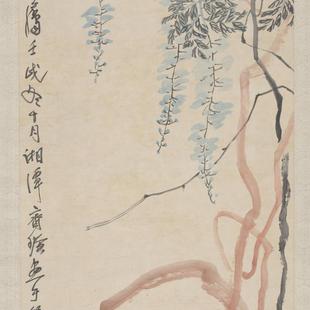 瀟壬戌冬十月湘潭齊璜畫于